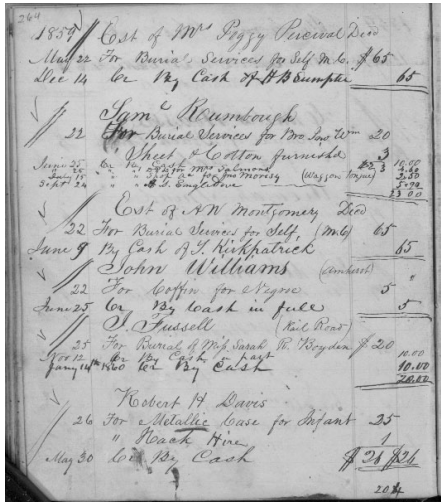 264
1859 Est of Mrs Peggy Percival Decd
May 22 For Burial Services for Self M.C. $65
Dec 14 Cr By Cash of H B Sumpter 65
Saml Rumbough
22 For Burial Services for Bro Ins Wm 20
Sheet & Cotton furnishd 3
June 25 Cr By Cash 10.00
for Mrs Salmond
Shop a/c for Jno (Waggon Tongue) 2.50
Sept 24 " " S. 5.90
23.00
Est of A W Montgomery Decd
22 For Burial Services for Self, (M.C) 65
June 9 By Cash of T. Kirkpatrick 65
John Williams (Amherst) "
22 For Coffin for Negroe 5
June 25 Cr By Cash in full 5
J. Fussell (Rail Road)
25 For Burial of Miss Sarah R. Boyden $20
Nov 12 Cr By Cash in part 10.00
Jany 14th 1860 Cr By Cash 10.00
20.00
Robert H Davis
26 For Metallic Case for Infant 25
" Hack Hire 1
May 30 Cr By Cash $26 $26
204